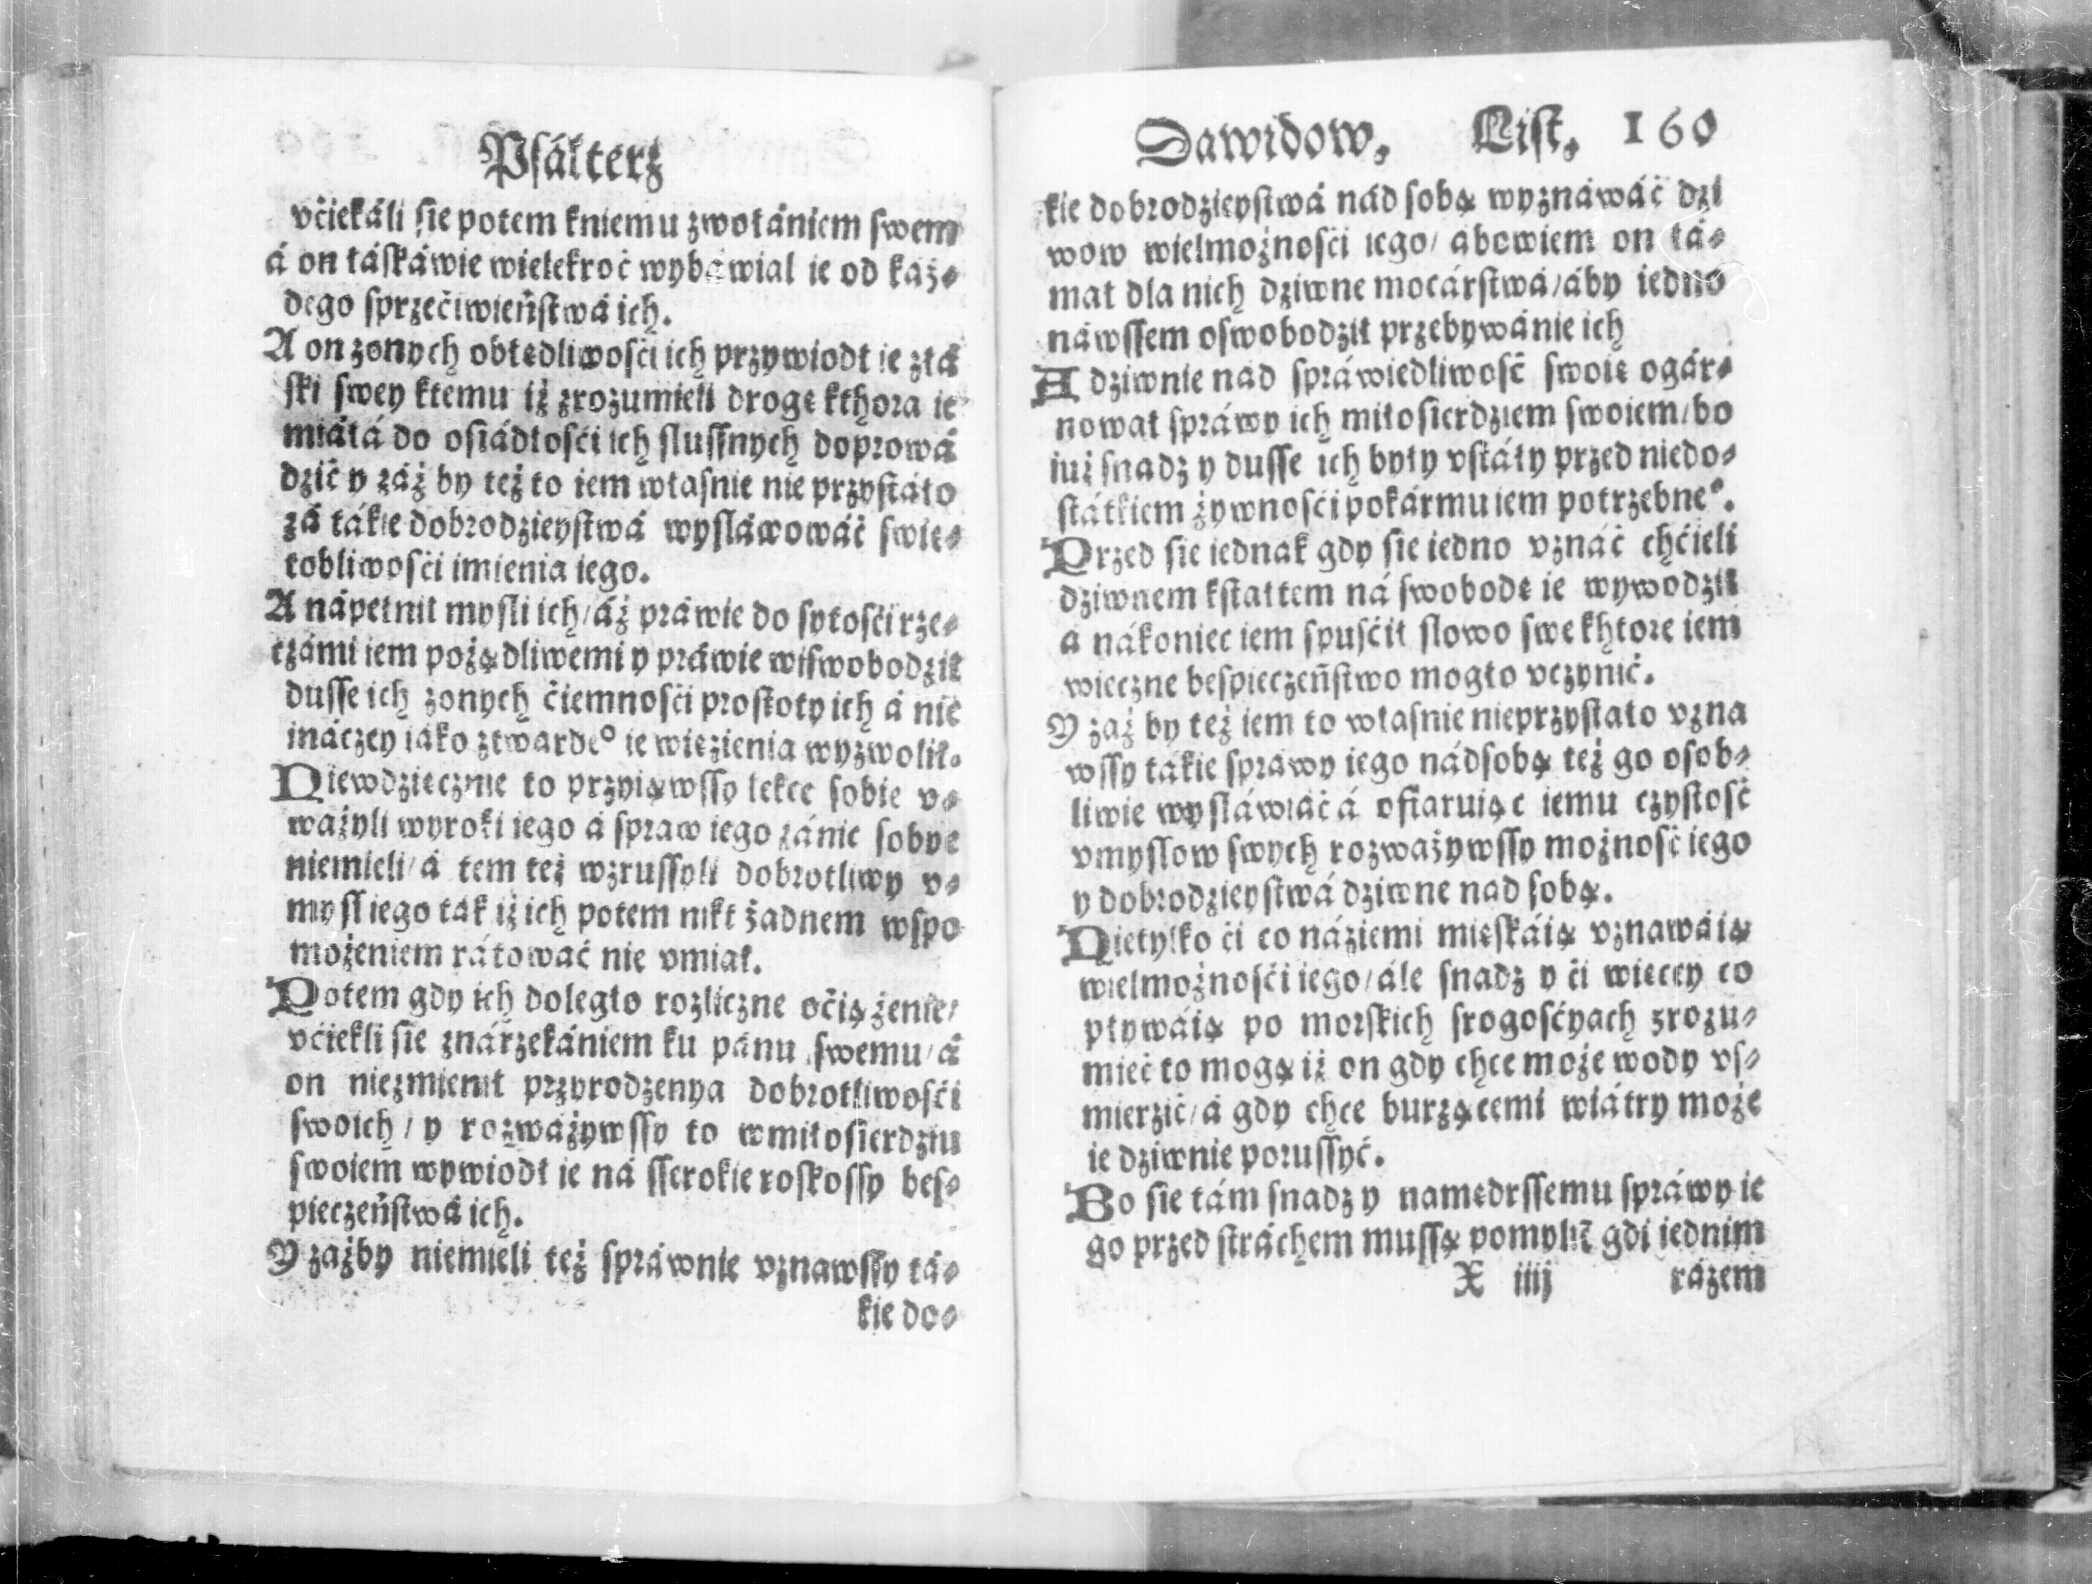 Psálterz
vciekáli sie potem kniemu zwołániem swem
á on łáskáwie wielekroć wybáwial ie od każ-
dego sprzećiwieństwá ich.
A on zonych obłędliwośći ich przywiodł ie złá
ski swey ktemu iż zrozumieli drogę kthora ie
miáłá do ośiádłośći ich slussnych doprowá
dzić y záż by też to iem własnie nie przystáło
zá tákie dobrodzieystwá wysláwowáć swię-
tobliwośći imienia iego.
A nápełnił mysli ich/ áż práwie do sytośći rze-
czámi iem pożądliwemi y práwie wiswobodził
dusse ich zonych ćiemnośći prostoty ich á nic
ináczey iáko ztwardeº ie więzienia wyzwolił.
Niewdzięcznie to przyiąwssy lekce sobie v-
ważyli wyroki iego á spraw iego zánic sobye
niemieli/ á tem też wzrussyli dobrotliwy v-
mysl iego ták iż ich potem nikt żadnem wspo
możeniem rátowáć nie vmiał.
Potem gdy ich doległo rozliczne oćiążenie/
vciekli sie znárzekániem ku pánu swemu/ á
on niezmienił przyrodzenya dobrotliwośći
swoich/ y rozważywssy to wmiłosierdziu
swoiem wywiodł ie ná sserokie roskossy bes-
pieczeństwá ich.
Y zażby niemieli też spráwnie vznawssy tá-
kie do-
Dawidow. List. 160
kie dobrodzieystwá nád sobą wyznáwáć dzi
wow wielmożnośći iego/ abowiem on łá-
mał dla nich dziwne mocárstwá/ áby iedno
náwssem oswobodził przebywánie ich
A dziwnie nád spráwiedliwość swoię ogár-
nował spráwy ich miłosierdziem swoiem/ bo
iuż snadz y dusse ich były vstáły przed niedo-
státkiem żywnośći pokármu iem potrzebneº.
Przed sie iednak gdy sie iedno vznáć chćieli
dziwnem kstałtem ná swobodę ie wywodził
á nákoniec iem spuśćił słowo swe khtore iem
wieczne bespieczeństwo mogło vczynić.
Y zaż by też iem to własnie nieprzystało vzna
wssy tákie spráwy iego nádsobą też go osob-
liwie wysláwiáć á ofiaruiąc iemu czystość
vmyslow swych rozważywssy możność iego
y dobrodzieystwá dziwne nad sobą.
Nietylko ći co náziemi mięskáią vznawáią
wielmożnośći iego/ ále snadz y ći więcey co
pływáią po morskich srogośćyach zrozu-
mieć to mogą iż on gdy chce może wody vś-
mierzić/ á gdy chce burzącemi wiátry może
ie dziwnie porussyć.
Bo sie tám snadz y namędrssemu spráwy ie
go przed stráchem mussą pomylić gdi iednim
X iiij rázem